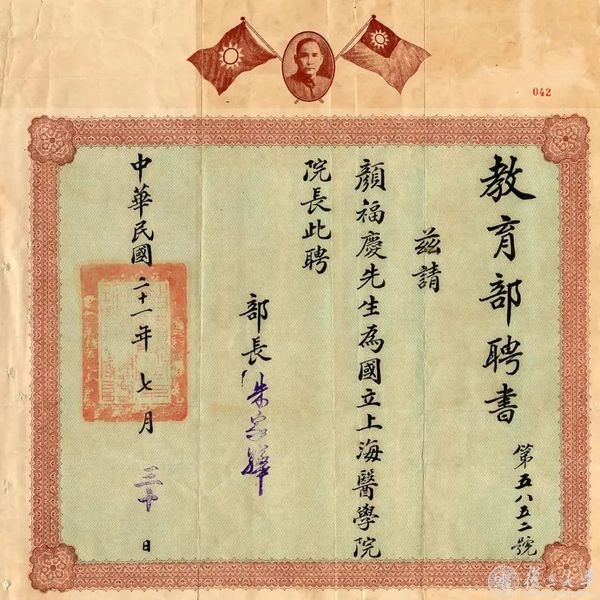 042
教育部聘書
第五八五二號
茲請
顏福慶先生為國立上海醫學院
院長此聘
部長 朱家驊
中華民國二十一年七月三十日
復旦大學